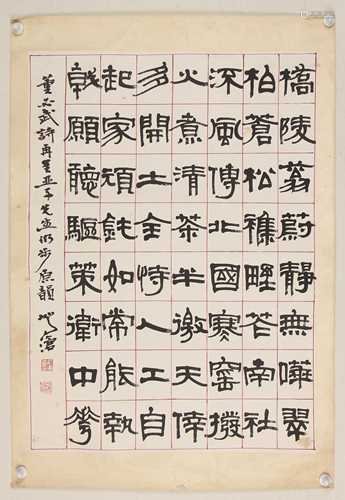 橋陵蓊蔚靜無嘩翠
柏蒼松襍野花南社
深風傳北國寒窰撥
火煮清茶半邀天倖
多開土全恃人工自
起家頑鈍如常能執
戟願聽驅策衛中華
董必武詩再呈亞子先生仍步原韻